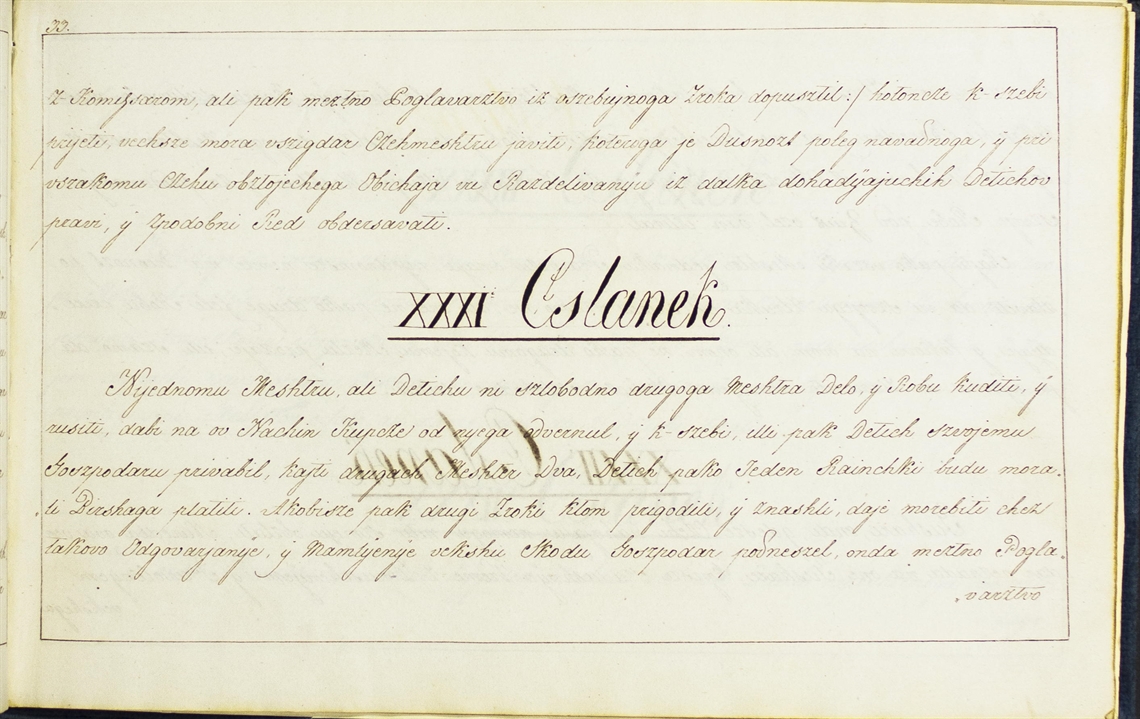 33.
z-Komiſsarom, ali pak mesztno Poglavarztvo iz oszebujnoga Zroka dopusztil:/ kotoncze k-szebi
prijeti, vechsze mora vszigdar Czehmeshtru javiti, koteriga je Dusnozt poleg navadnoga, ÿ pri
vszakomu Czehu obztojechega Obichaja vu Razdelivanju iz dalka dohadÿajuchih Detichov
pravi, ÿ zpodobni Red obdersavati.
XXXI Cslanek.
Nijednomu Meshtru, ali Detichu ni szlobodno drugoga Meshtra Delo, ÿ Robu kuditi, ÿ
rusiti, dabi na ov Nachin Kupcze od njega odvernul, ÿ k-szebi, illi pak Detich szvojemu
Goszpodaru privabil, kajti drugach Meshter Dva, Detich pako Jeden Rainchki budu mora-
ti Birshaga platiti. Akobisze pak drugi Zroki ktom prigodili, ÿ znashli, daje morebiti chez
takovo Odgovarjanje, ÿ Mamlyenje vekshu Skodu Goszpodar podneszel, onda mesztno Pogla-
varztvo